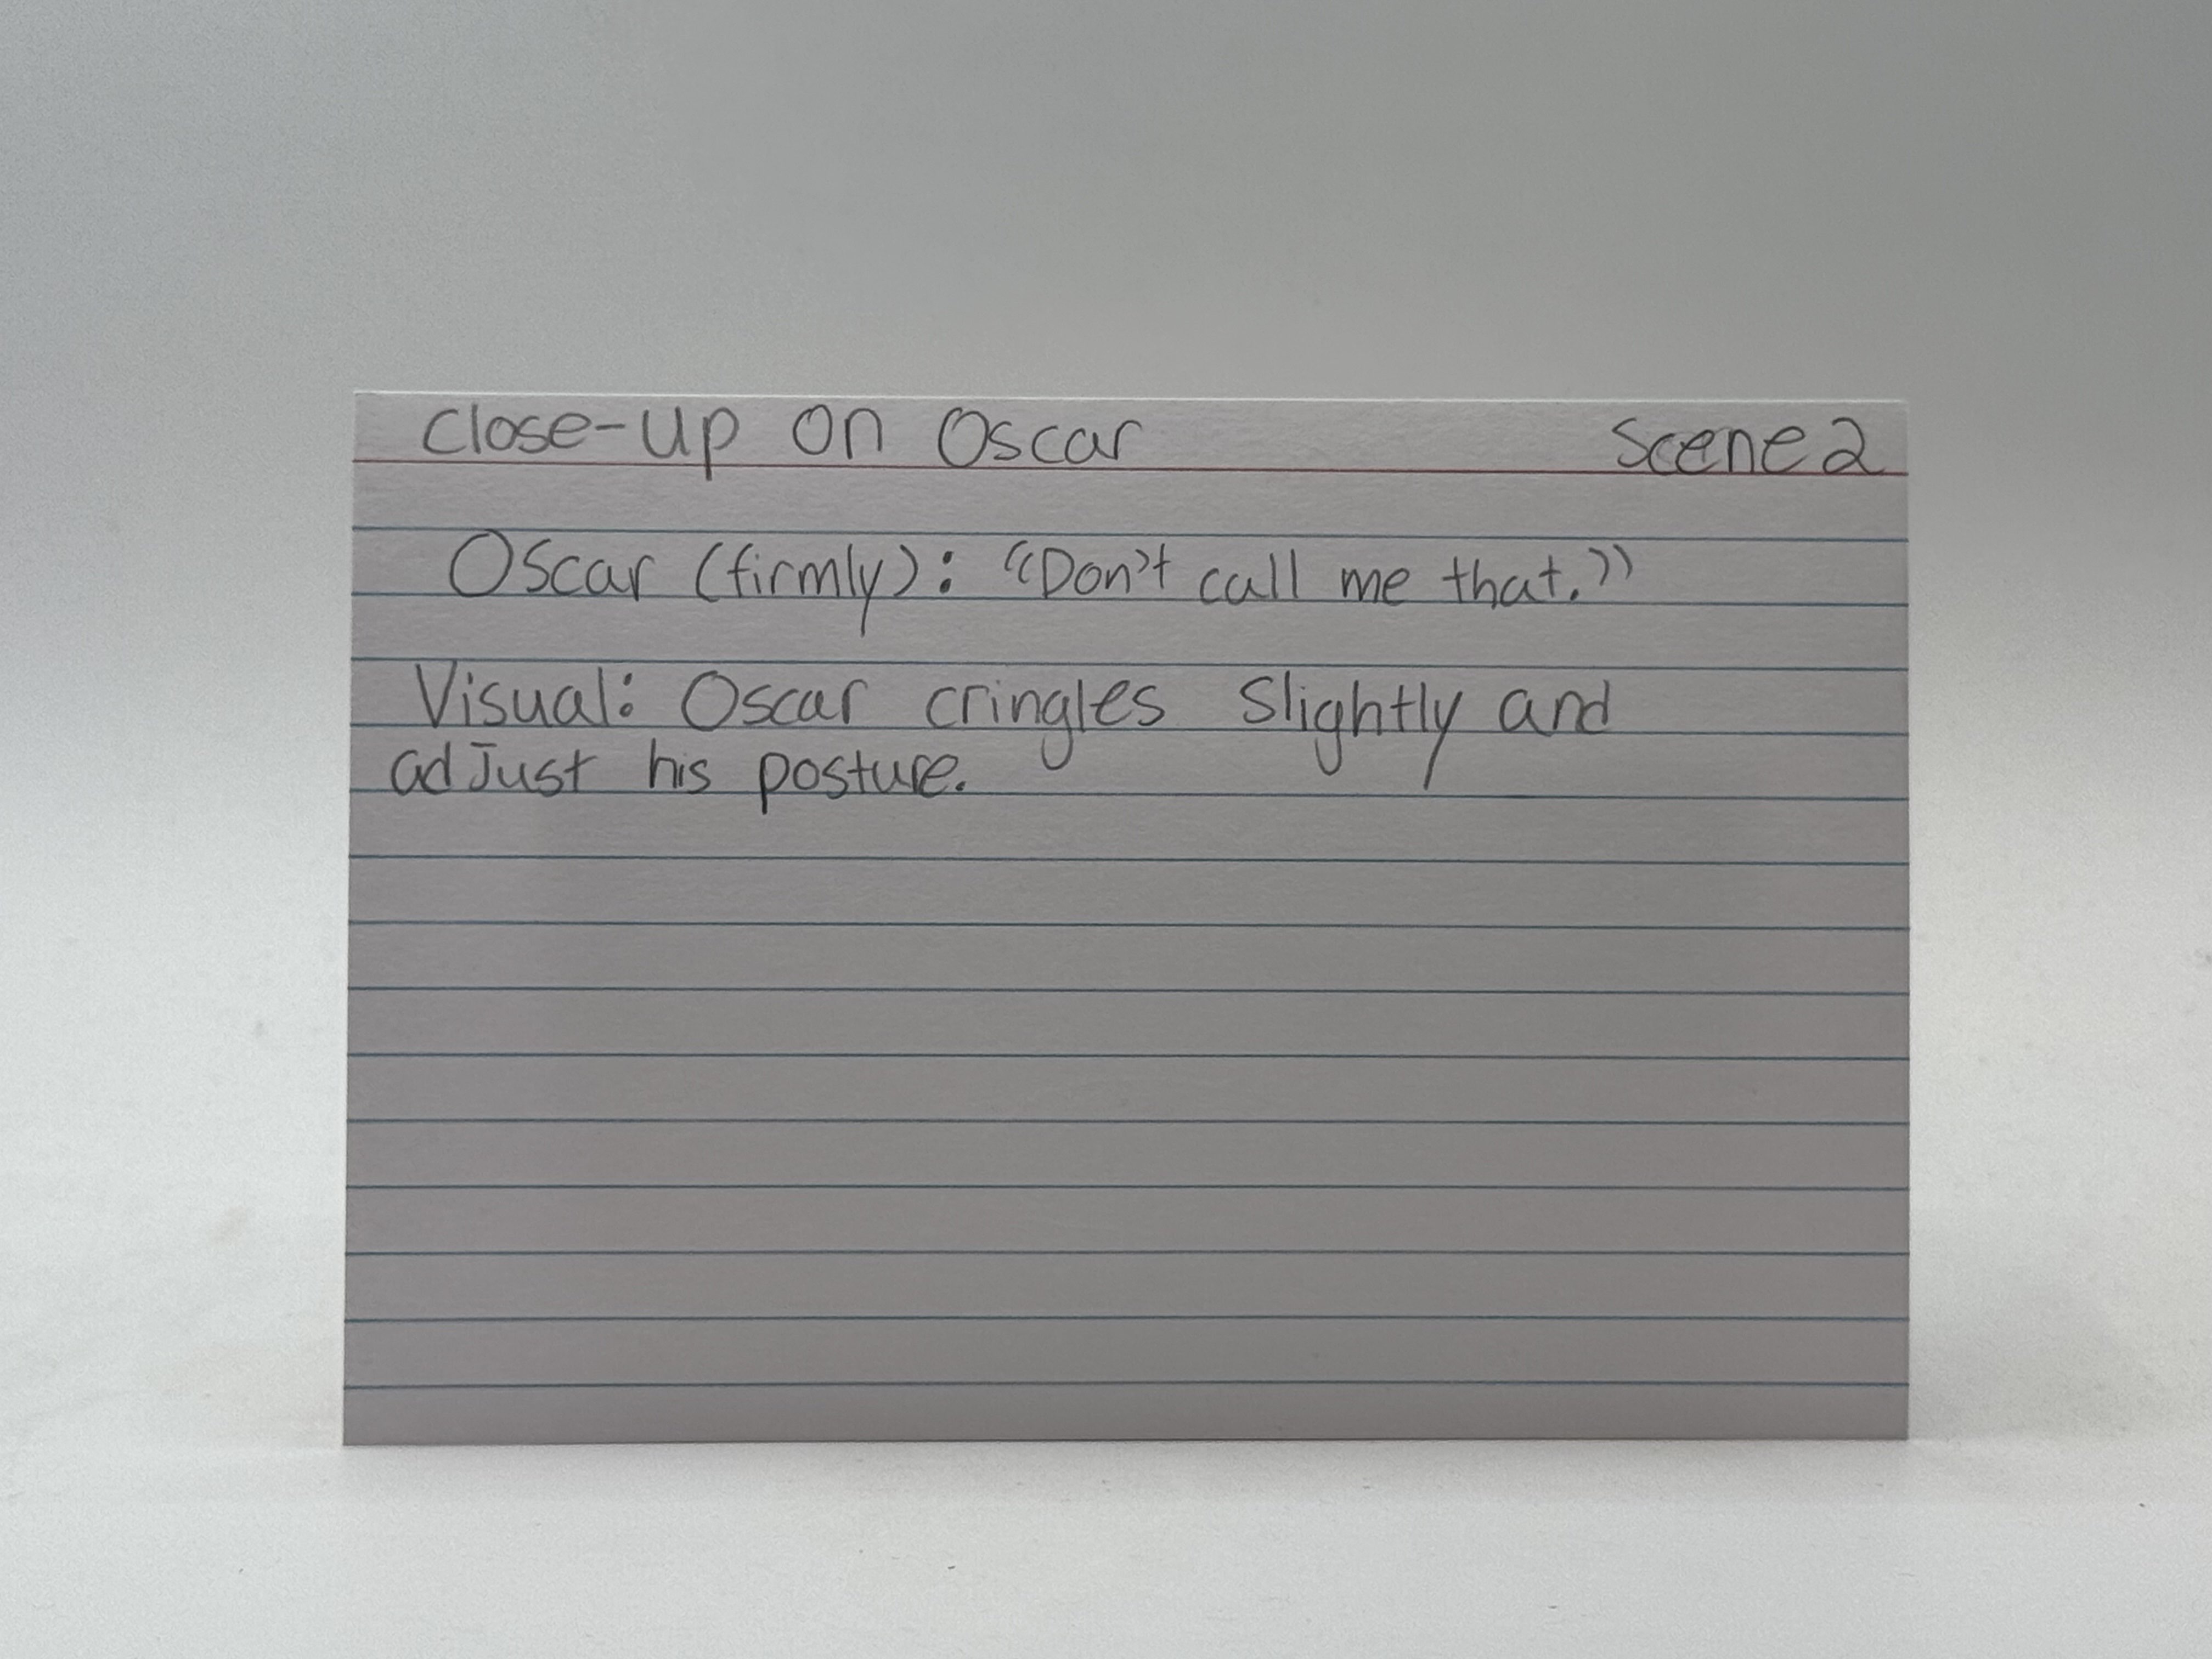 Close-up on Oscar Scene 2
Oscar (firmly): "Don't call me that."
Visual: Oscar cringles slightly and
adjust his posture.